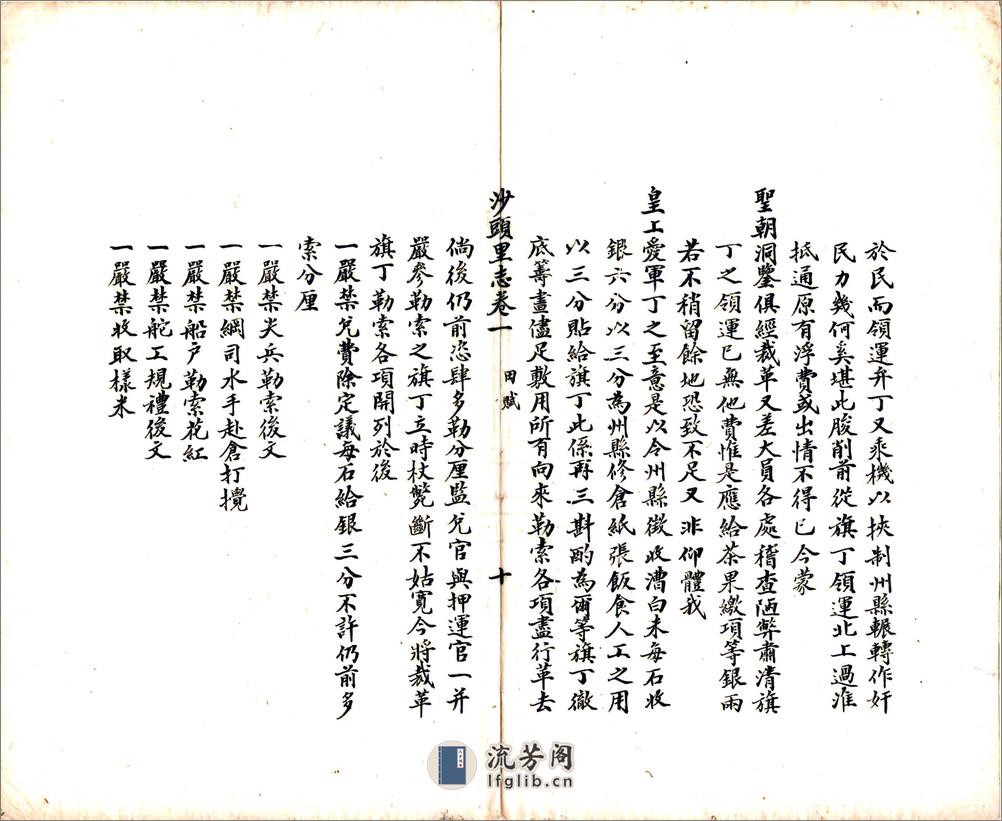 於民而領運弁丁又乘機以挾制州縣輾轉作奸
民力幾何奚堪此朘削前從旗丁領運北上過淮
抵通原有浮費或出情不得已今蒙
聖朝洞鑒俱經裁革又差大員各處稽查陋弊肅清旗
丁之領運已無他費惟是應給茶果繳項等銀兩
若不稍留餘地恐致不足又非仰體我
皇上愛軍丁之至意是以令州縣徵收漕白未每石收
銀六分以三分為州縣修倉紙張飯食人工之用
以三分貼給旗丁此係再三斟酌為爾等旗丁徹
底籌畫儘足敷用所有向來勒索各項盡行革去
沙頭里志卷一 田賦 十
倘後仍前恣肆多勒分厘監兌官與押運官一并
嚴參勒索之旗丁立時杖斃斷不姑寬今將裁革
旗丁勒索各項開列於後
一嚴禁兌費除定議每石給銀三分不許仍前多
索分厘
一嚴禁尖兵勒索後文
一嚴禁綱司水手赴倉打攪
一嚴禁船户勒索花紅
一嚴禁舵工規禮後文
一嚴禁收取樣米
流芳阁
lfglib.cn